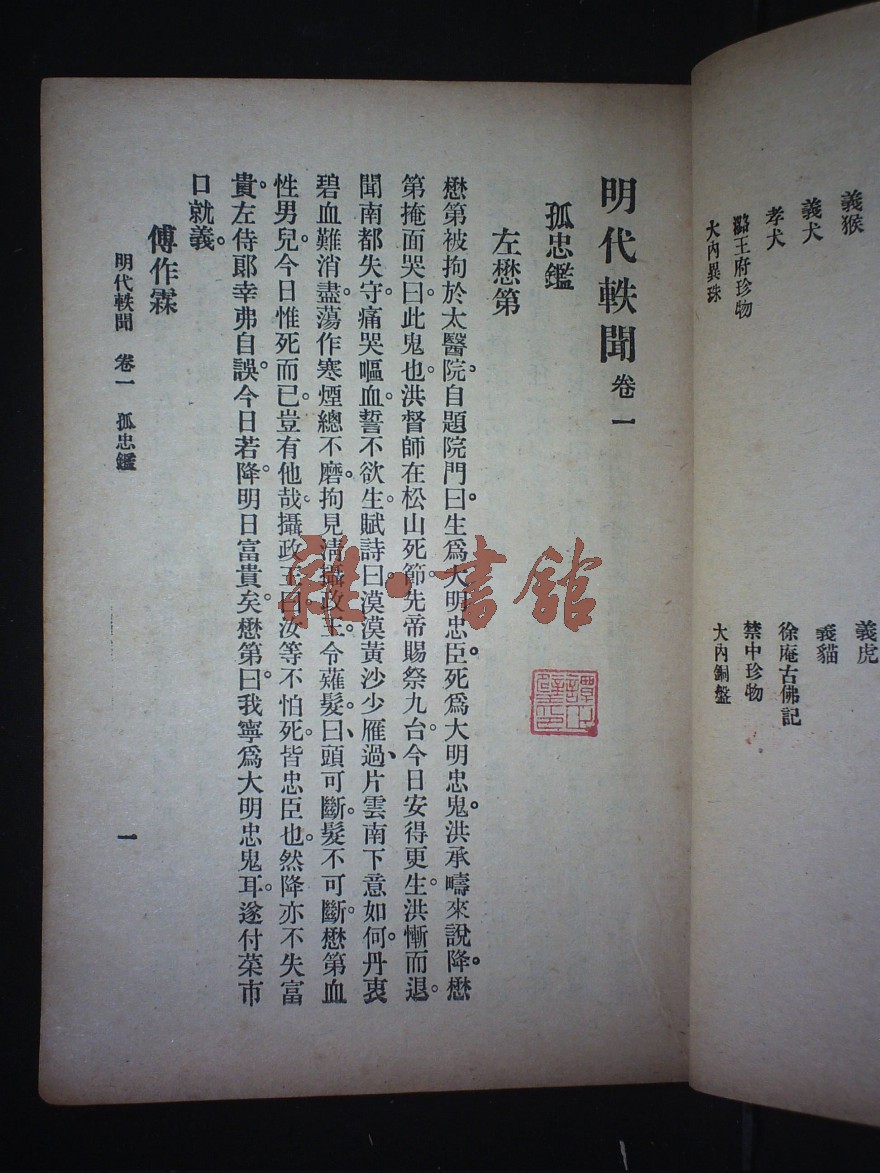 義猴 義虎
義犬 義貓
孝犬 徐庵古佛記
潞王府珍物 禁中珍物
大內異珠 大內銅盤
明代軼聞 卷一
孤忠鑑
左懋第
懋第被拘於太醫院、自題院門曰。生爲大明忠臣。死爲大明忠鬼。洪承疇來說降。懋
第掩面哭曰。此鬼也。洪督師在松山死節。先帝賜祭九台。今日安得更生。洪慚而退。
聞南都失守。痛哭嘔血。誓不欲生。賦詩曰。漠漠黃沙少雁過、片雲南下意如何。丹衷
碧血難消盡。蕩作寒煙總不磨。拘見淸攝政王令薙髮、曰、頭可斷。髮不可斷。懋第血
性男兒。今日惟死而已。豈有他哉。攝政王曰。汝等不怕死。皆忠臣也。然降亦不失富
貴。左侍郎幸弗自誤。今日若降。明日富貴矣。懋第曰。我寧爲大明忠鬼耳。遂付菜市
口就義。
傅作霖
明代軼聞 卷一 孤忠鑑
一
雜·書館